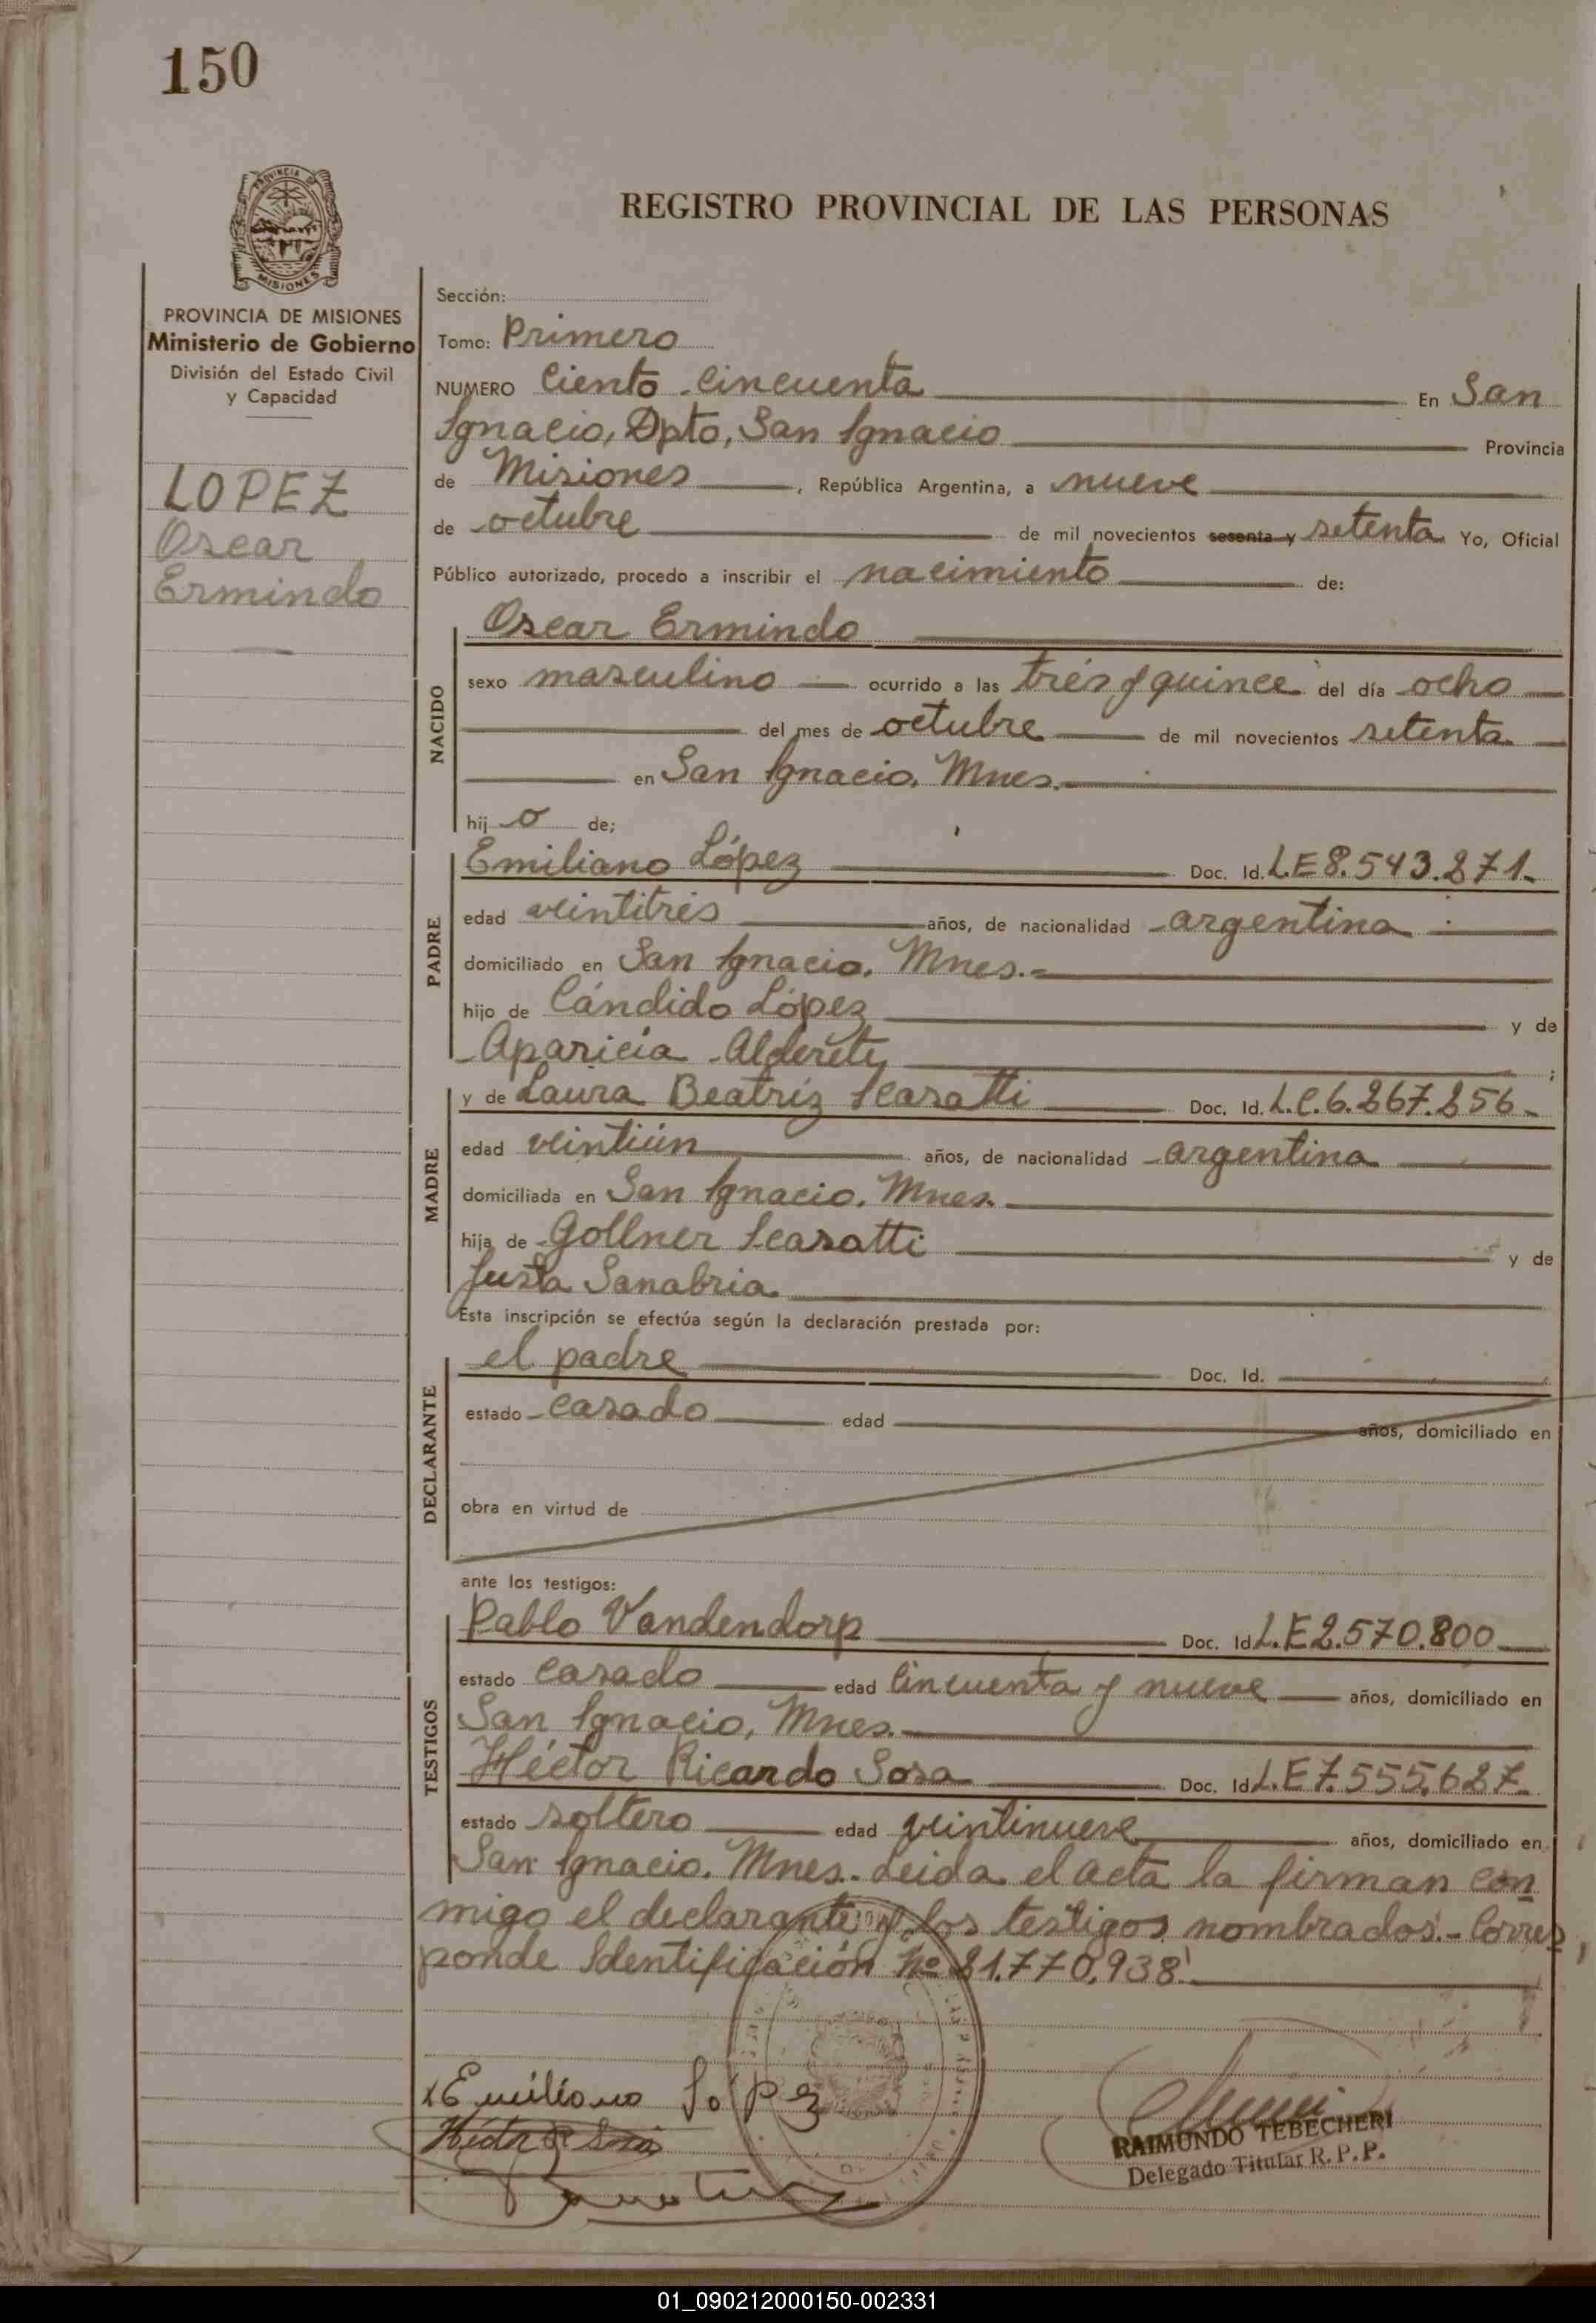 150
PROVINCIA DE
MISIONES
REGISTRO PROVINCIAL DE LAS PERSONAS
PROVINCIA DE MISIONES
Ministerio de Gobierno
División del Estado Civil
y Capacidad
LOPEZ
Oscar
Ermindo
Sección:
Tomo: Primero
NUMERO Ciento cincuenta En San
Ignacio, Dpto, San Ignacio Provincia
de Misiones, República Argentina, a nueve
de octubre de mil novecientos sesenta y setenta Yo, Oficial
Público autorizado, procedo a inscribir el nacimiento de:
NACIDO
Oscar Ermindo
sexo masculino ocurrido a las trés y quince del día ocho
del mes de octubre de mil novecientos setenta
en San Ignacio, Mnes.
hij o de;
PADRE
Emiliano López Doc. Id. L.E 8.543.871.
edad veintitrés años, de nacionalidad argentina
domiciliado en San Ignacio, Mnes.
hijo de Cándido López y de
Aparicia Alderety ;
MADRE
y de Laura Beatríz Scasatti Doc. Id. L.C. 6.267.256
edad veintiún años, de nacionalidad argentina
domiciliada en San Ignacio, Mnes.
hija de Gollner Scasatti y de
Justa Sanabria
Esta inscripción se efectúa según la declaración prestada por:
DECLARANTE
el padre Doc. Id.
estado casado edad años, domiciliado en
obra en virtud de
ante los testigos:
TESTIGOS
Pablo Vandendorp Doc. Id L.E 2.570.800
estado casado edad cincuenta y nueve años, domiciliado en
San Ignacio, Mnes.
Héctor Ricardo Sosa Doc. Id L.E 7.555.627
estado soltero edad veintinueve años, domiciliado en
San Ignacio, Mnes.- Leida el acta la firman con
migo el declarante y los testigos nombrados.- Corres
ponde Identificación Nº 21.770.938
Emiliano López
Héctor R Sosa
RAIMUNDO TEBECHERI
Delegado Titular R. P. P.
01_090212000150-002331